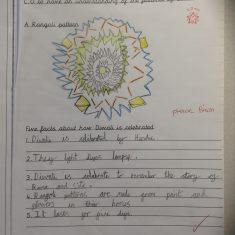 C.O. to have an understanding of the festival of
A Rangoli pattern
Five facts about how Diwali is celebrated
1. Diwali is celebrated by Hindus.
2. They light diyas lamps.
3. Diwali is celebrate to remember the story of
Rama and Sita.
4. Rangoli patterns are made from paint and
flowers in their homes
5. It lasts for five days.